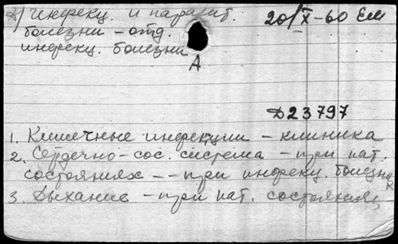 2) Инфекц. и паразит. 20/X-60 Ем
болезни - отд.
инфекц. болезни
А
Д23797
1. Кишечные инфекции - клиника
2. Сердечно-сос. система - при пат.
состояниях -- при инфекц. болезнях
3. Дыхание - при пат. состояниях